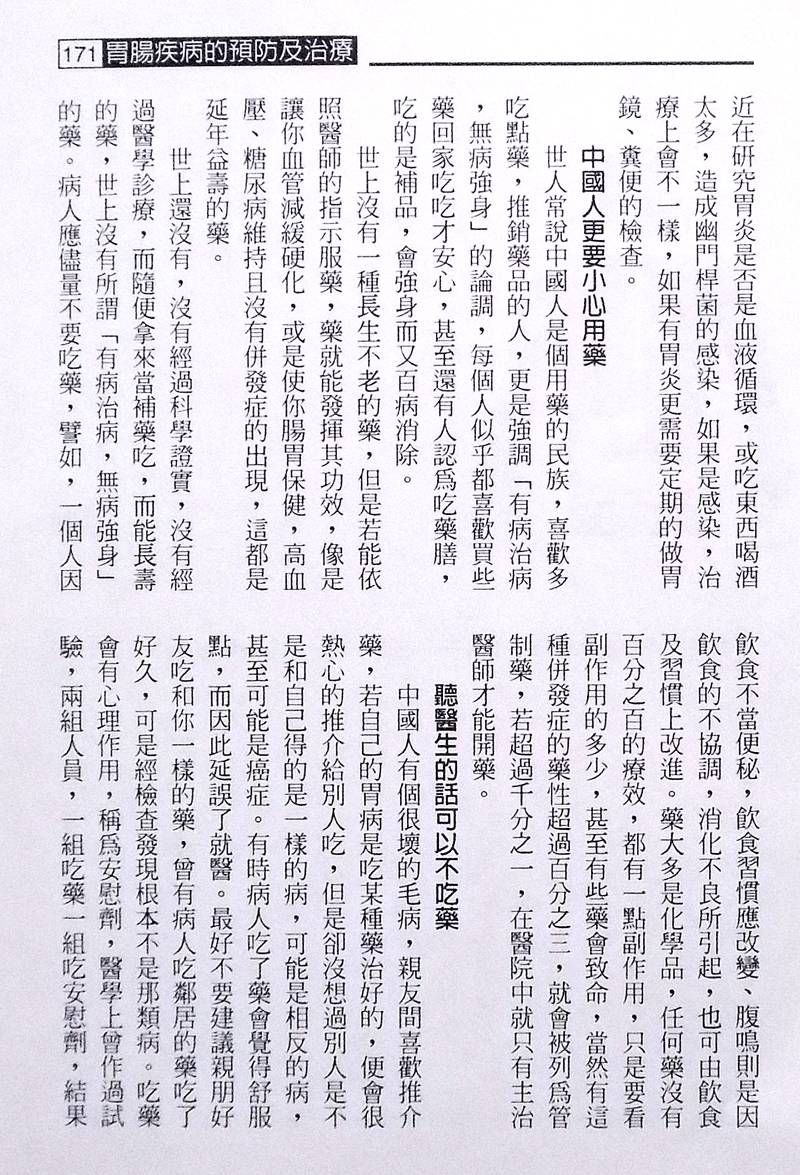 171 胃腸疾病的預防及治療
近在研究胃炎是否是血液循環，或吃東西喝酒
太多，造成幽門桿菌的感染，如果是感染，治
療上會不一樣，如果有胃炎更需要定期的做胃
鏡、糞便的檢查。
中國人更要小心用藥
世人常說中國人是個用藥的民族，喜歡多
吃點藥，推銷藥品的人，更是強調「有病治病
，無病強身」的論調，每個人似乎都喜歡買些
藥回家吃吃才安心，甚至還有人認爲吃藥膳，
吃的是補品，會強身而又百病消除。
世上沒有一種長生不老的藥，但是若能依
照醫師的指示服藥，藥就能發揮其功效，像是
讓你血管減緩硬化，或是使你腸胃保健，高血
壓、糖尿病維持且沒有併發症的出現，這都是
延年益壽的藥。
世上還沒有，沒有經過科學證實，沒有經
過醫學診療，而隨便拿來當補藥吃，而能長壽
的藥，世上沒有所謂「有病治病，無病強身」
的藥。病人應儘量不要吃藥，譬如，一個人因
飲食不當便秘，飲食習慣應改變、腹鳴則是因
飲食的不協調，消化不良所引起，也可由飲食
及習慣上改進。藥大多是化學品，任何藥沒有
百分之百的療效，都有一點副作用，只是要看
副作用的多少，甚至有些藥會致命，當然有這
種併發症的藥性超過百分之三，就會被列爲管
制藥，若超過千分之一，在醫院中就只有主治
醫師才能開藥。
聽醫生的話可以不吃藥
中國人有個很壞的毛病，親友間喜歡推介
藥，若自己的胃病是吃某種藥治好的，便會很
熱心的推介給別人吃，但是卻沒想過別人是不
是和自己得的是一樣的病，可能是相反的病，
甚至可能是癌症。有時病人吃了藥會覺得舒服
點，而因此延誤了就醫。最好不要建議親朋好
友吃和你一樣的藥，曾有病人吃鄰居的藥吃了
好久，可是經檢查發現根本不是那類病。吃藥
會有心理作用，稱爲安慰劑，醫學上曾作過試
驗，兩組人員，一組吃藥一組吃安慰劑，結果